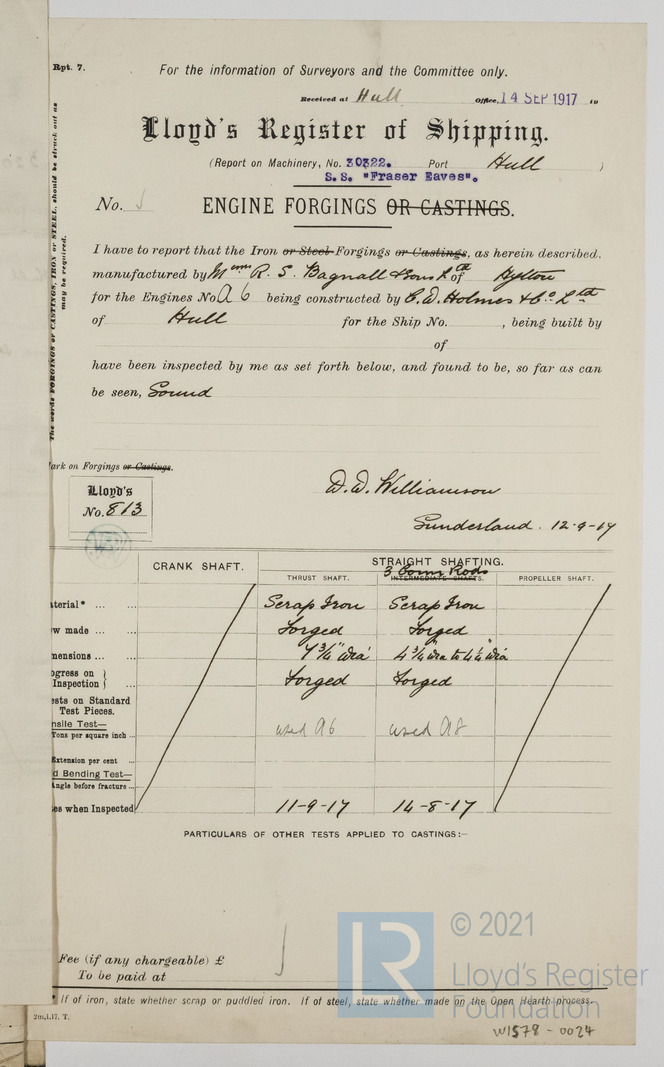 Rpt. 7.
For the information of Surveyors and the Committee only.
Received at Hull Office, 14 SEP 1917 19
Lloyd's Register of Shipping.
(Report on Machinery, No. 30322. Port Hull )
S.S. "Fraser Eaves".
No.
ENGINE FORGINGS OR CASTINGS.
The words FORGINGS or CASTINGS, IRON or STEEL, should be struck out as
may be required.
I have to report that the Iron or Steel Forgings or Castings, as herein described,
manufactured by Messrs R. S. Bagnall & Sons Ltd of Hylton
for the Engines No A 6 being constructed by C. D. Holmes & Co Ltd
of Hull for the Ship No. , being built by
of
have been inspected by me as set forth below, and found to be, so far as can
be seen, Sound
ark on Forgings or Castings.
Lloyd's
No. 813
D. D. Williamson
Sunderland. 12-9-17
CRANK SHAFT.
STRAIGHT SHAFTING.
THRUST SHAFT.
3 Conn Rods
INTERMEDIATE SHAFTS.
PROPELLER SHAFT.
aterial* ... ... Scrap Iron Scrap Iron
w made ... ... Forged Forged
mensions ... ... 7 3/4" dia 4 3/4" dia to 4 1/4" dia
ogress on
Inspection ... Forged Forged
ests on Standard
Test Pieces.
nsile Test—
Tons per square inch ... used A6 used A8
Extension per cent ...
d Bending Test—
Angle before fracture ...
es when Inspected 11-9-17 14-8-17
PARTICULARS OF OTHER TESTS APPLIED TO CASTINGS:—
Fee (if any chargeable) £
To be paid at
* If of iron, state whether scrap or puddled iron. If of steel, state whether made on the Open Hearth process.
2m,1.17. T.
LR
© 2021
Lloyd's Register
Foundation
W1578-0024